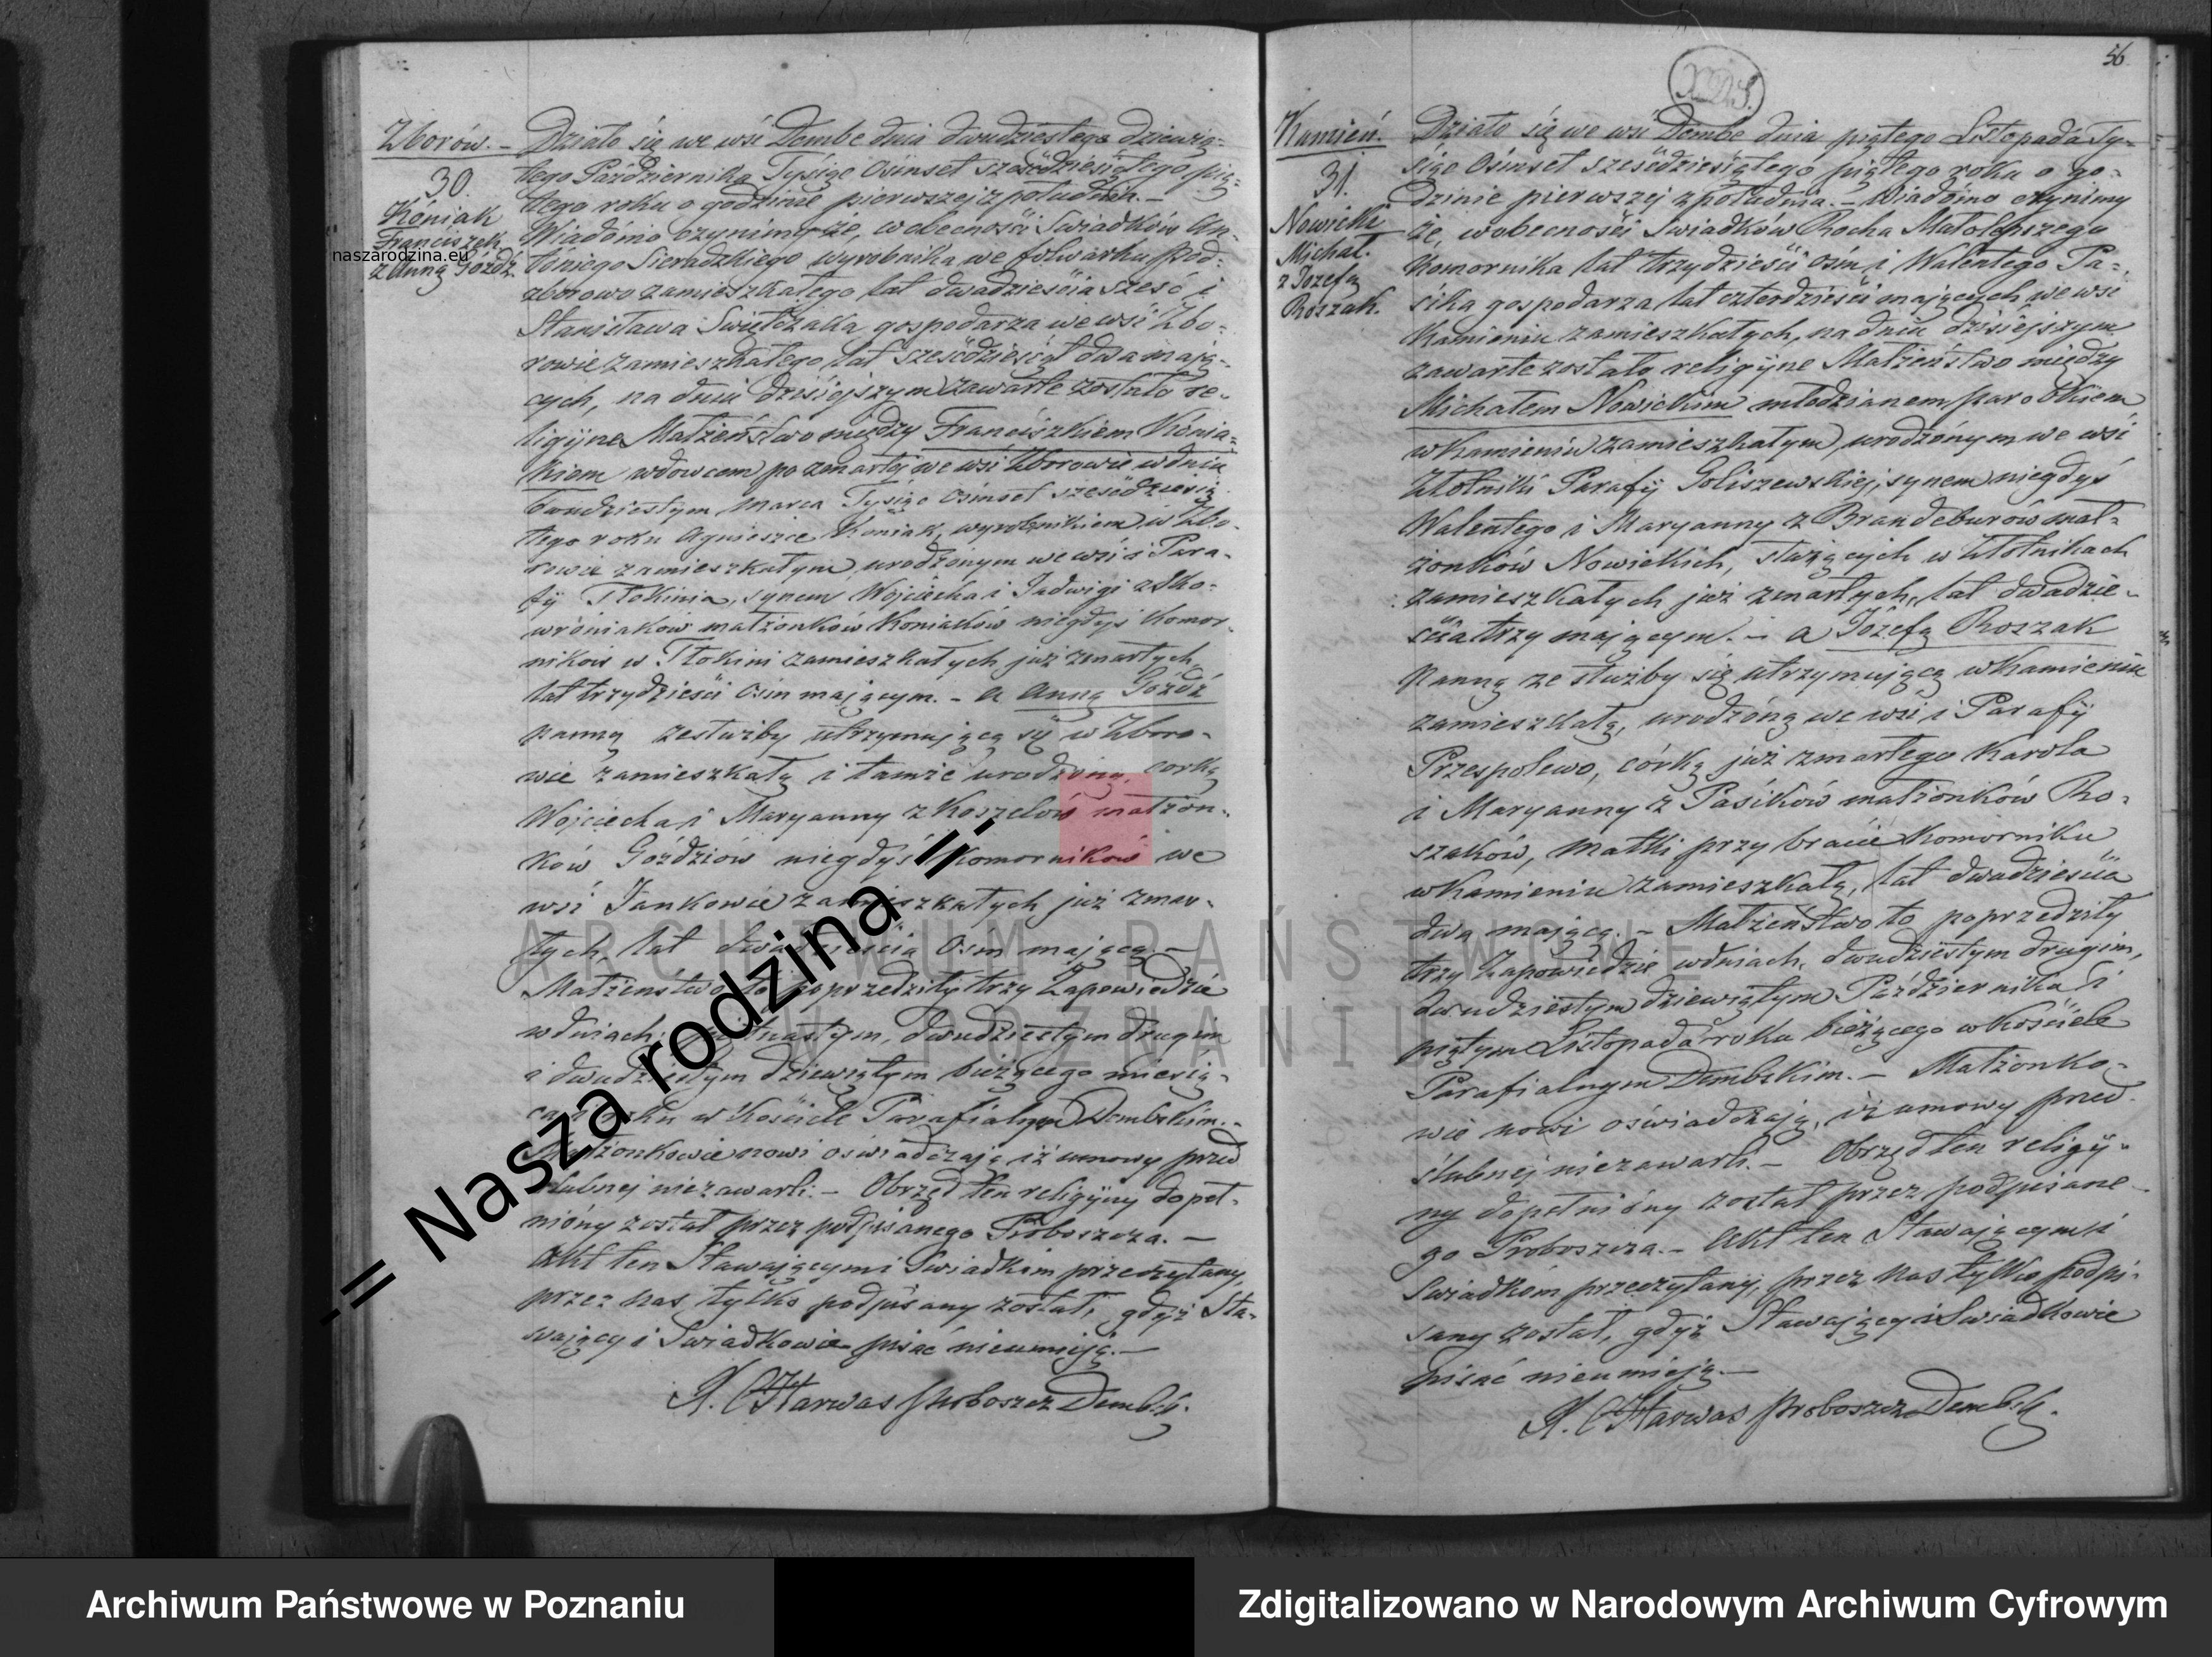 Zborów. –
30.
Kóniak
Franciszek
z Anną Góźdź.
naszarodzina.eu
Działo się we wsi Dembe dnia dwudziestego dziewią-
tego Października Tysiąc Osimset sześćdziesiątego pią-
tego roku o godzinie pierwszej z południa. –
Wiadomo czynimy że, w obecności Swiadków An-
toniego Sieradzkiego wyrobnika we folwarku Pod-
zborowo zamieszkałego lat dwadzieścia sześć i
Stanisława Swiętczaka gospodarza we wsi Zbo-
rowie zamieszkałego lat sześćdziesiąt dwa mają-
cych, na dniu dzisiejszym zawarte zostało re-
ligijne Małżeństwo między Franciszkiem Kónia-
kiem wdowcem po zmarłej we wsi Zborowie w dniu
dwudziestym Marca Tysiąc Osimset sześćdziesią-
tego roku Agnieszce Koniak, wyrobnikiem w Zbo-
rowie zamieszkałym, urodzonym we wsi i Para-
fij Tłokinia, synem Wójciecha i Jadwigi z Sko-
wróniaków małżonków Koniaków niegdyś Komor-
ników w Tłokini zamieszkałych już zmarłych,
lat trzydzieści Osim mającym. – a Anną Góźdź
panną ze służby utrzymującą się w Zboro-
wie zamieszkałą i tamże urodzoną, corką
Wojciecha i Maryanny z Koszelów małżon-
ków Goździów niegdyś Komorników we
wsi Jankowie zamieszkałych już zmar-
łych, lat dwadzieścia Osm mającą. –
Małżeństwo to poprzedziły trzy Zapowiedzie
w dniach, piętnastym, dwudziestym drugim
i dwudziestym dziewiątym bieżącego miesią-
ca i roku w Kościele Parafialnym Dembskim. –
Małżonkowie nowi oświadczają iż umowy przed
ślubnej niezawarli. – Obrzęd ten religijny dopeł-
nióny został przez podpisanego Proboszcza. –
Akt ten Stawającymi Swiadkim przeczytany,
przez nas tylko podpisany został, gdyż Sta-
wający i Swiadkowie pisać nieumieją. –
X. C Harwas Proboszcz Dembsk.
56
Kamień.
31.
Nowicki
Michał.
z Jozefą
Roszak.
Działo się we wsi Dembe dnia piątego Listopada Ty-
siąc Osimset sześćdziesiątego piątego roku o go-
dzinie pierwszej z południa. – Wiadomo czynimy
że, w obecności Swiadków Rocha Małolepszego
Komornika lat trzydzieści Osim i Walentego Pa-
sika gospodarza lat czterdzieści mających we wsi
Kamieniu zamieszkałych, na dniu dzisiejszym
zawarte zostało religijne Małżeństwo między
Michałem Nowickim młodzianem parobkiem
w Kamieniu zamieszkałym, urodzónym we wsi
Złotniki Parafij Goliszewskiej, synem niegdyś
Walentego i Maryanny z Brandeburów mał-
żonków Nowickich, służących w Złotnikach
zamieszkałych już zmarłych, lat dwadzie-
ścia trzy mającym. – a Józefą Roszak
Panną ze służby się utrzymującą w Kamieniu
zamieszkałą, urodzóną we wsi i Parafij
Przespolewo, córką już zmarłego Karola
i Maryanny z Pasików małżonków Ro-
szaków, matki przy bracie Komorniku
w Kamieniu zamieszkałą, lat dwadzieścia
dwa mającą. – Małżeństwo to poprzedziły
trzy Zapowiedzie w dniach, dwudziestym drugim,
dwudziestym dziewiątym Października i
piątym Listopada roku bieżącego w Kościele
Parafialnym Dembskim. – Małżonko-
wie nowi oświadczają, iż umowy przed
ślubnej niezawarli. – Obrzęd ten religij-
ny dopełnióny został przez podpisane-
go Proboszcza. – Akt ten Stawającym i
Swiadkom przeczytany, przez nas tylko podpi-
sany został, gdyż Stawający i Swiadkowie
pisać nieumieją. –
X. C Harwas Proboszcz Dembsk.
ARCHIWUM PAŃSTWOWE
W POZNANIU
-= Nasza rodzina =-
Archiwum Państwowe w Poznaniu
Zdigitalizowano w Narodowym Archiwum Cyfrowym